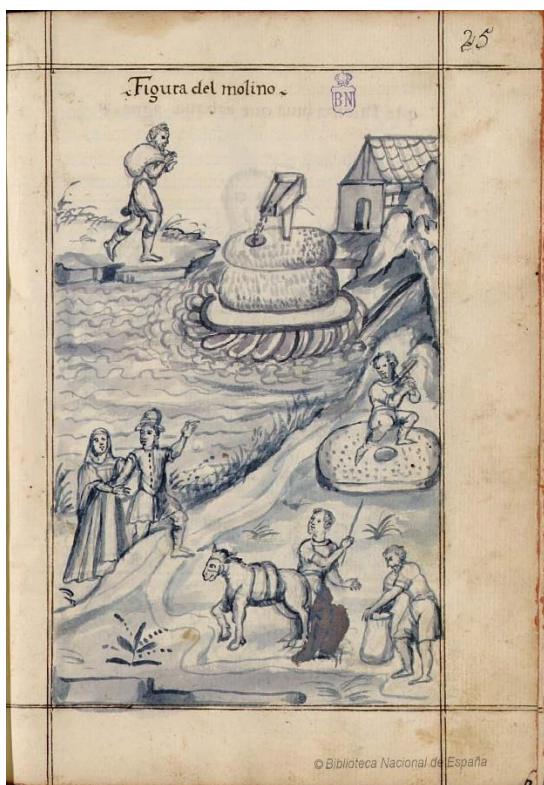 25
Figura del molino
BN
© Biblioteca Nacional de España